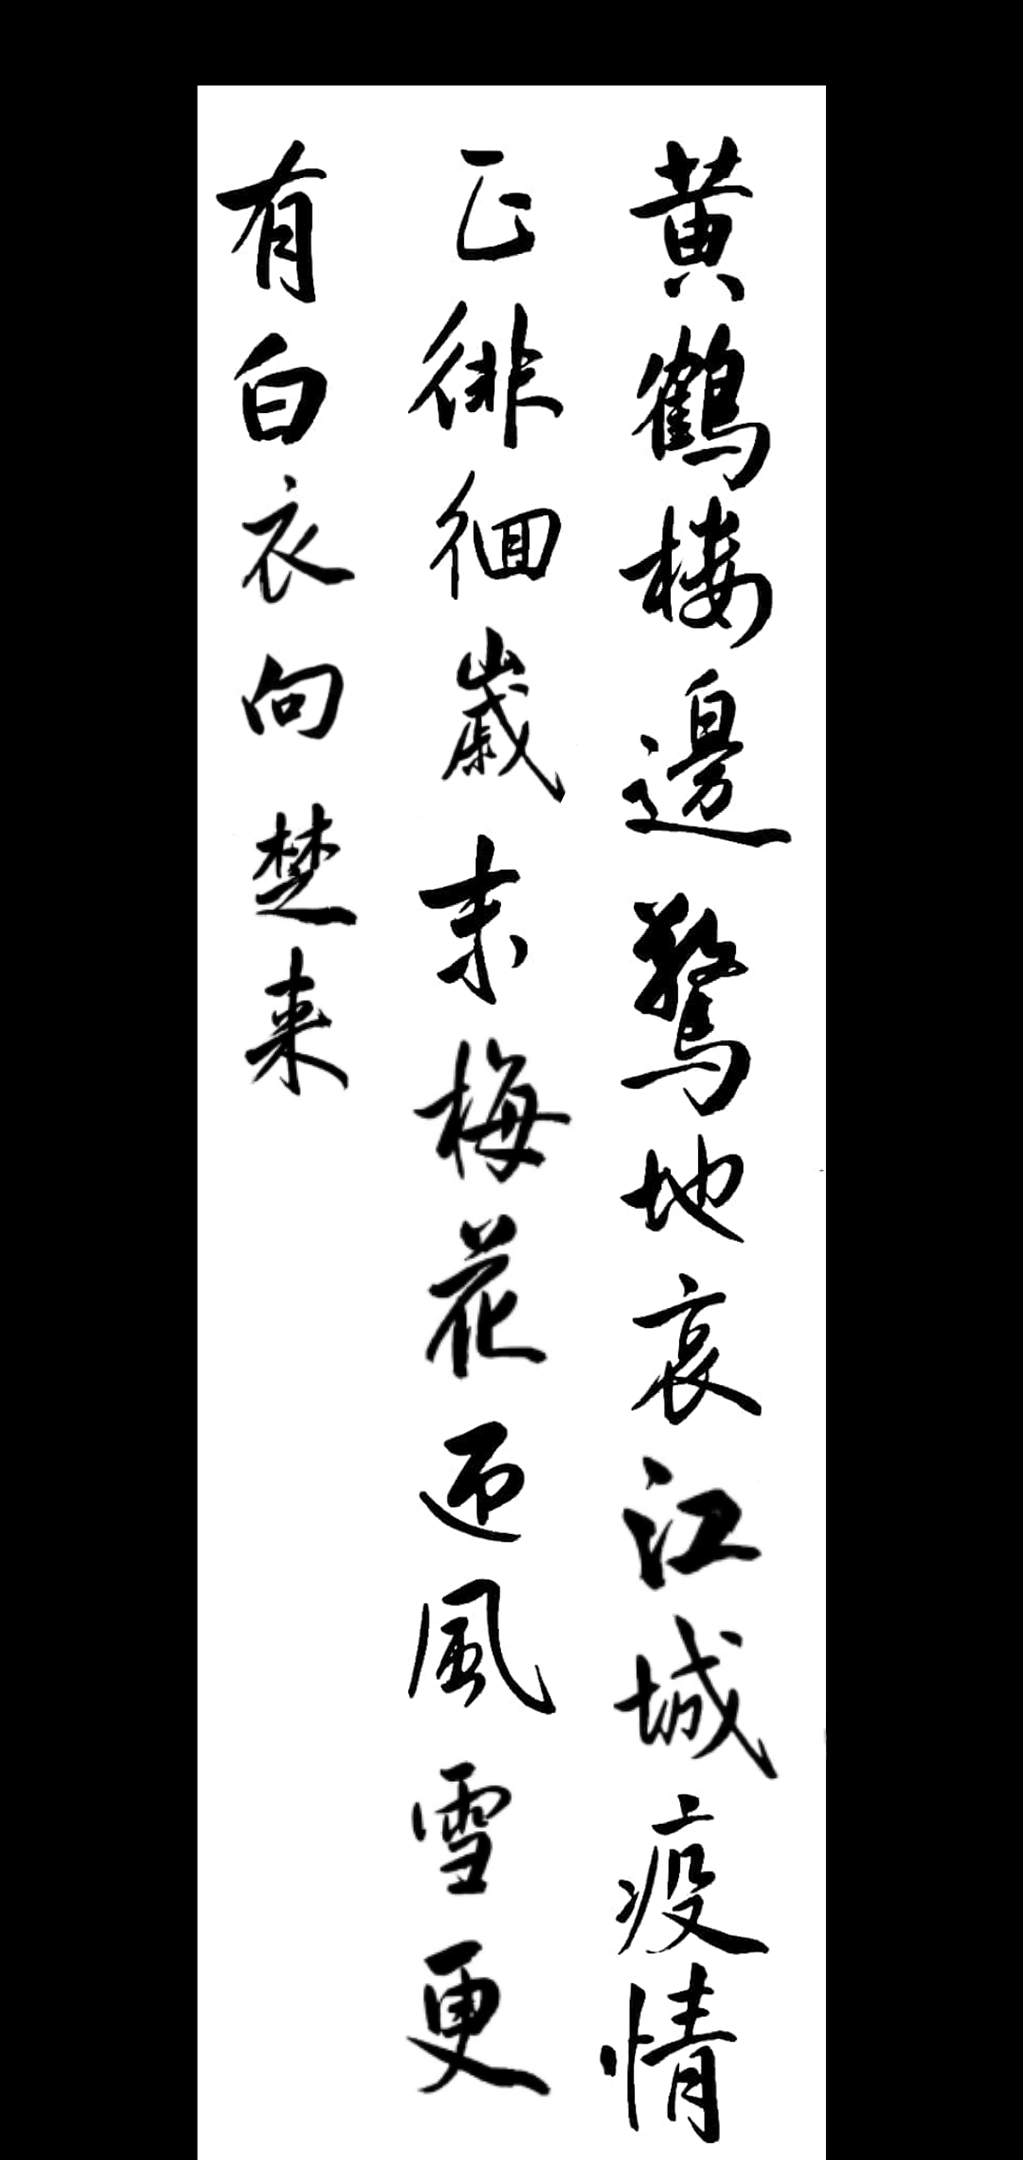 黄鶴楼邊驚地哀江城疫情
正徘徊歲末梅花迎風雪更
有白衣向楚来